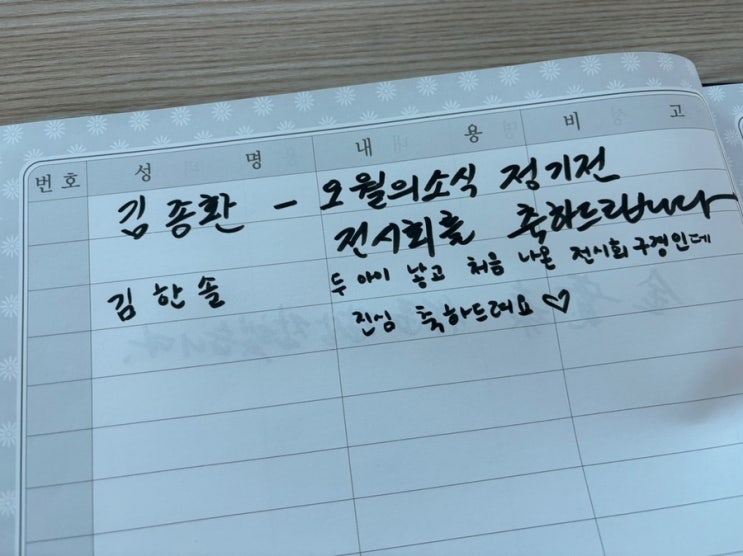 번호 성명 내용 비고
김종환 - 오월의소식 정기전
전시회를 축하드립니다
김한솔 두 아이 낳고 처음 나온 전시회구경인데
진심 축하드려요♡